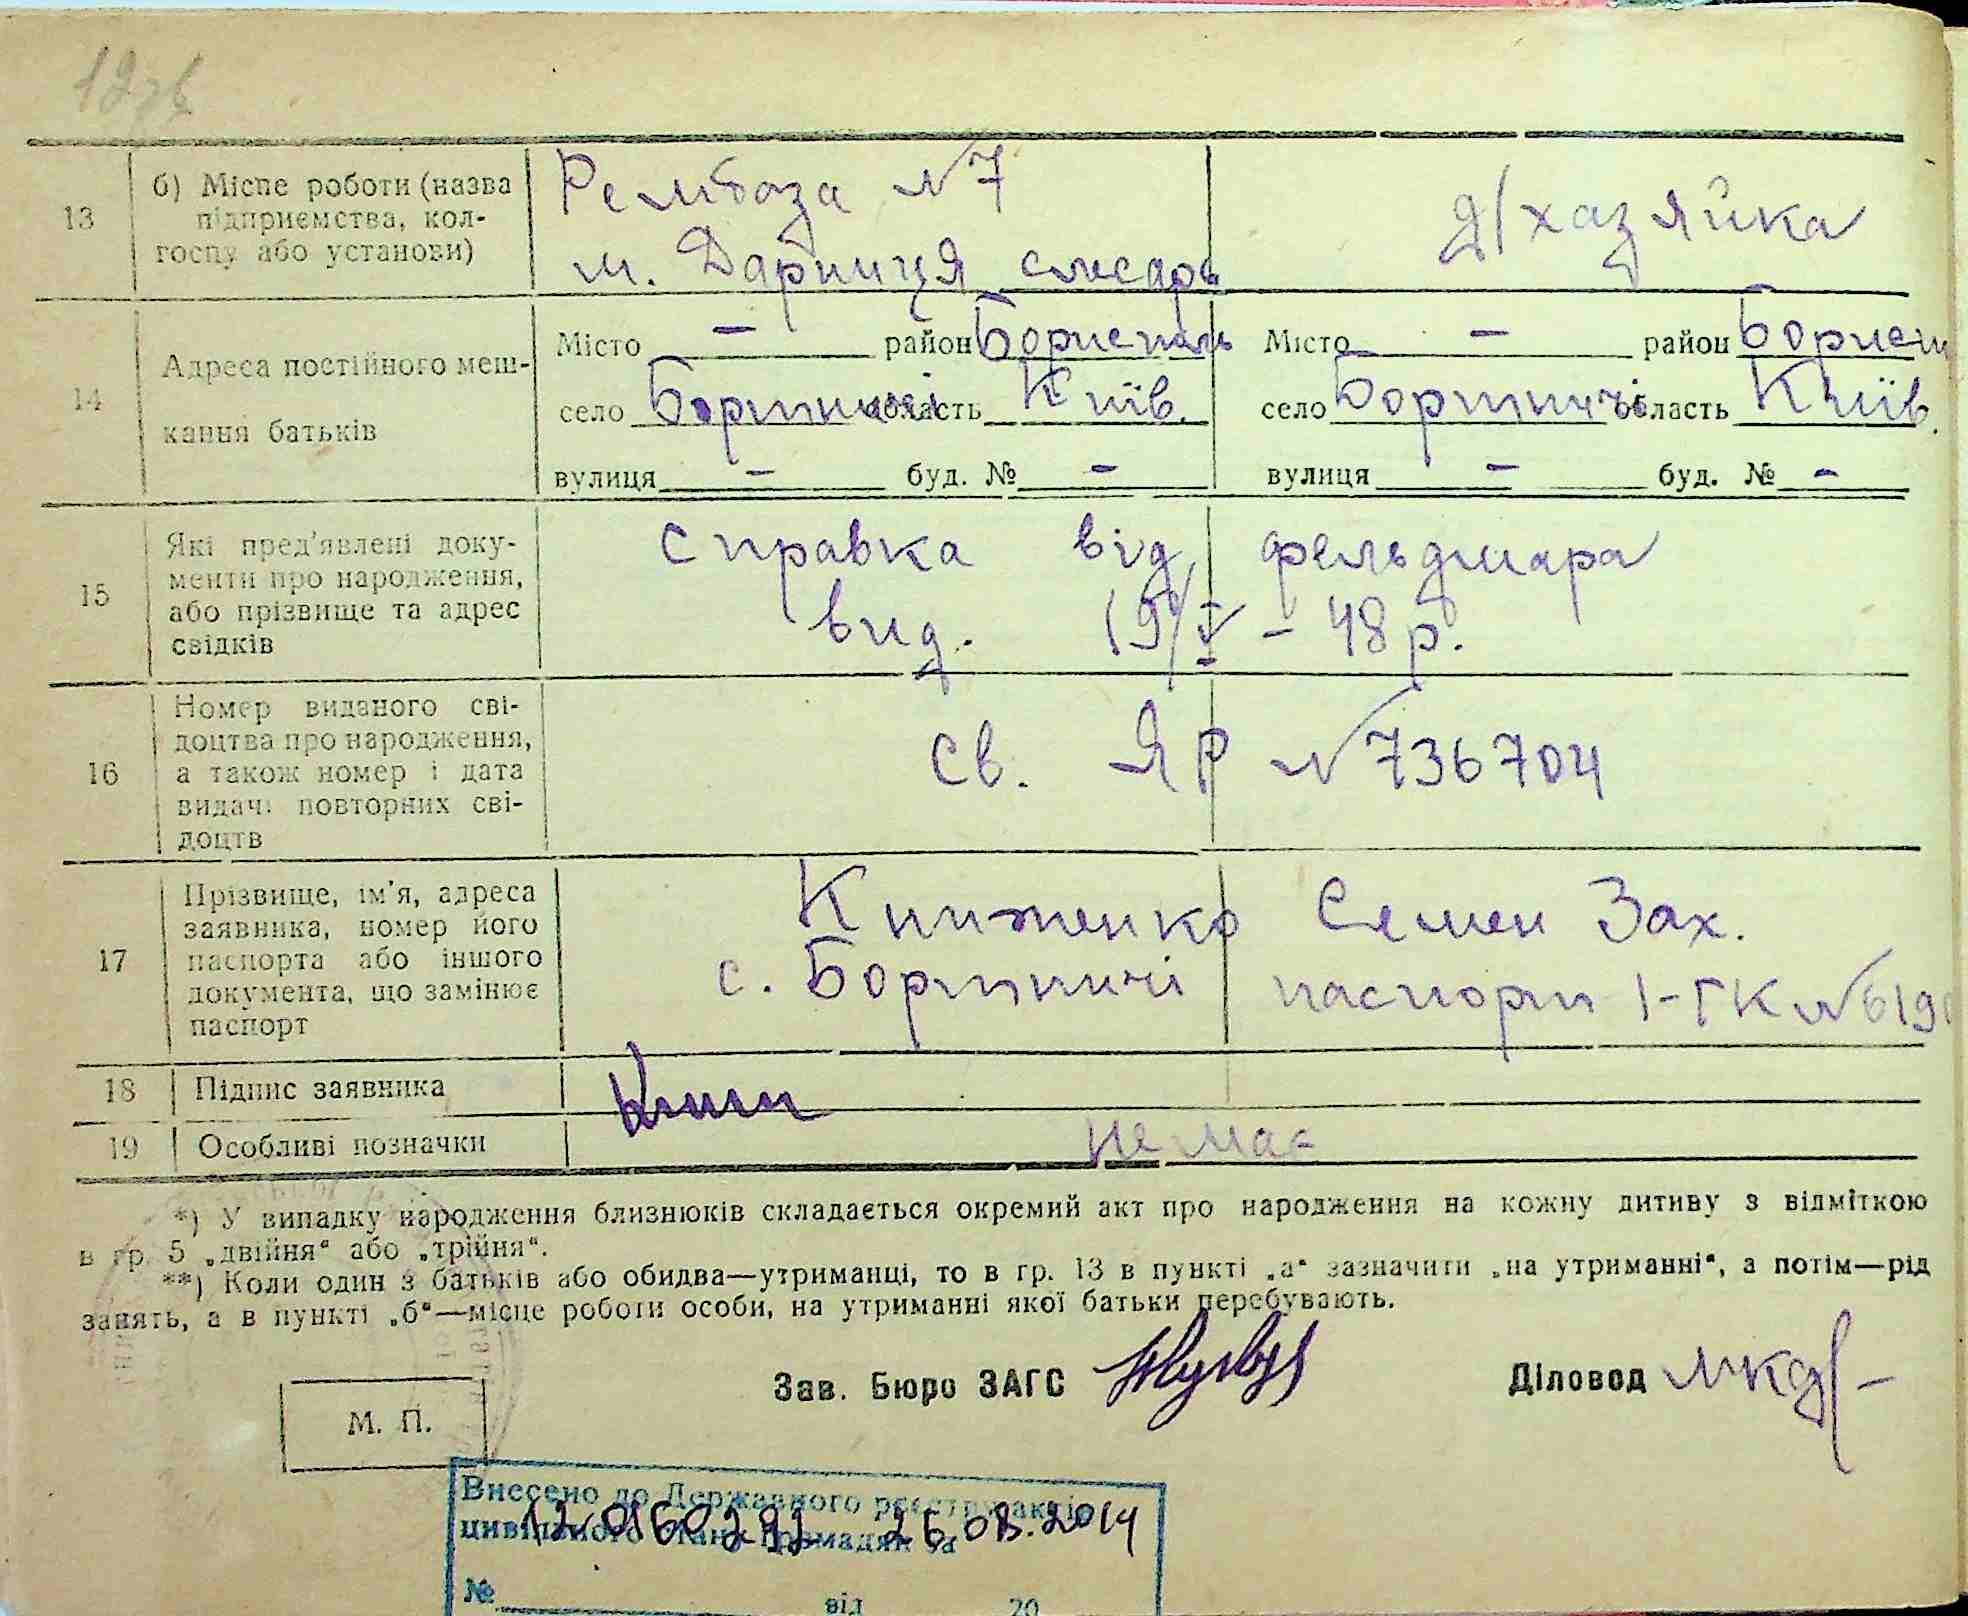 13 б) Місце роботи (назва підприємства, колгоспу або установи) Рембаза №7 м. Дарниця слюсарь д/хазяйка
14 Адреса постійного мешкання батьків
Місто — район Бориспіль Місто — район Борисп
село Бортничі область Київ. село Бортничі область Київ.
вулиця — буд. № — вулиця — буд. № —
15 Які пред'явлені документи про народження, або прізвище та адрес свідків справка від фельдшара
вид. 19/V – 48 р.
16 Номер виданого свідоцтва про народження, а також номер і дата видачі повторних свідоцтв св. ЯР №736704
17 Прізвище, ім'я, адреса заявника, номер його паспорта або іншого документа, що замінює паспорт Книженко Семен Зах.
с. Бортничі паспорт 1-ГК №619
18 Підпис заявника
19 Особливі позначки немає
*) У випадку народження близнюків складається окремий акт про народження на кожну дитиву з відміткою
в гр. 5 „двійня“ або „трійня“.
**) Коли один з батьків або обидва—утриманці, то в гр. 13 в пункті „а“ зазначити „на утриманні“, а потім—рід
занять, а в пункті „б“—місце роботи особи, на утриманні якої батьки перебувають.
Зав. Бюро ЗАГС Діловод
М. П.
Внесено до Державного реєстру актів
цивільного стану громадян за
12 0160292 26.08.2014
№ від 20